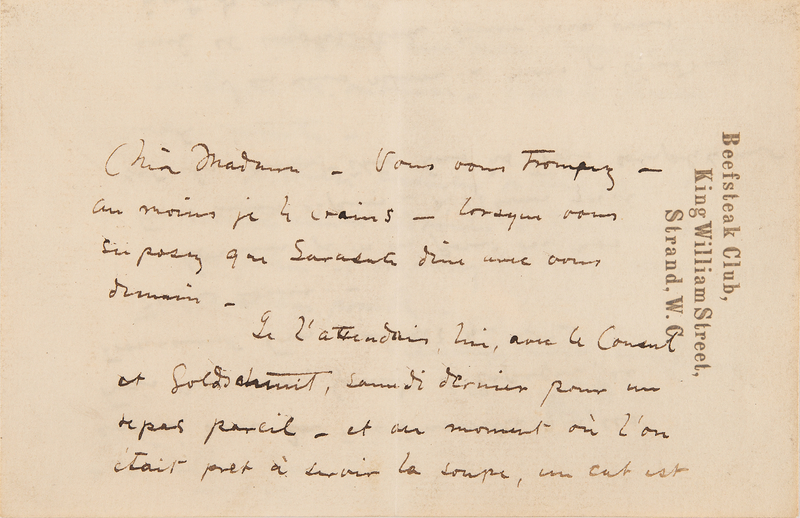 Beefsteak Club,
King William Street,
Strand, W. C
Chère Madame – Vous vous trompez –
au moins je le crains – lorsque vous
supposez que Sarasate dîne avec vous
demain –
Je l'attendais, lui, avec le Consul
et Goldschmit, samedi dernier pour un
repas pareil – et au moment où l'on
était prêt à servir la soupe, un est